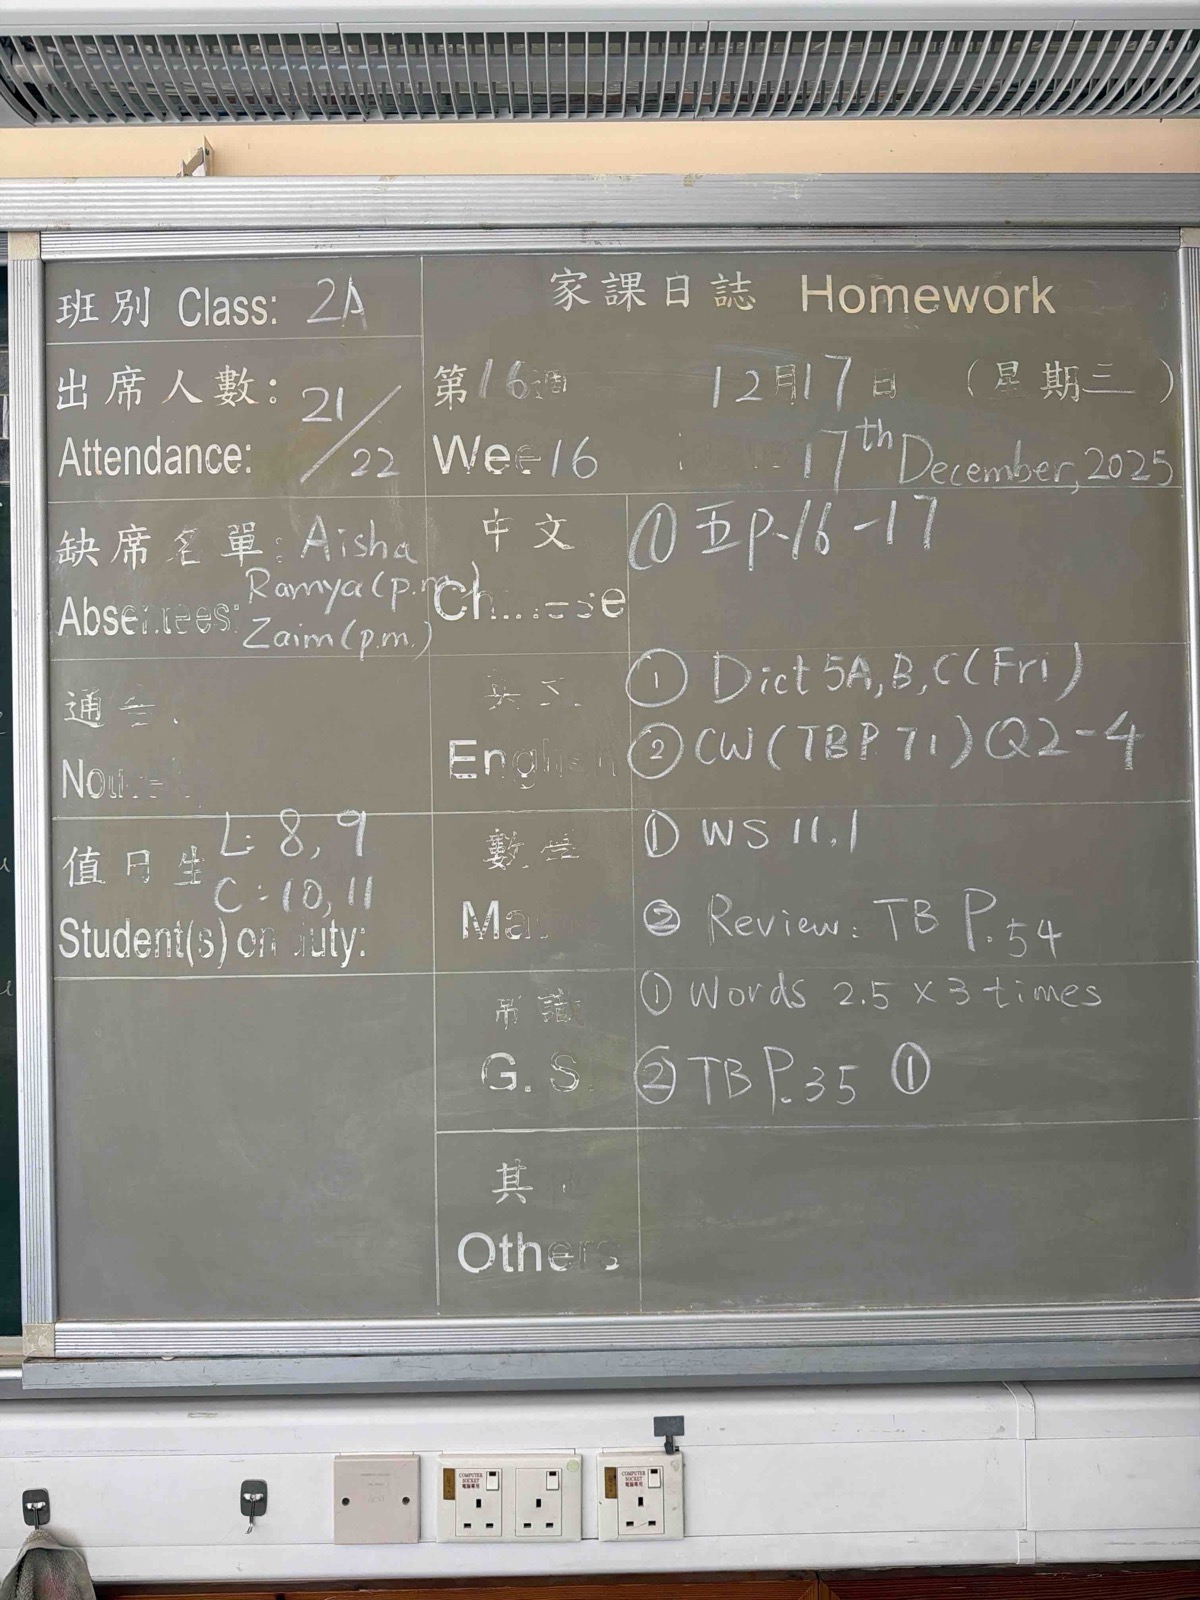 班別 Class: 2A
家課日誌 Homework
出席人數: 21/22
Attendance:
第16週 12月17日 (星期三)
Wee 16 17th December, 2025
缺席名單: Aisha
Absentees: Ramya (p.m.)
Zaim (p.m.)
中文
Ch...ese
① 五P.16-17
通告
No
英文
English
① Dict 5A, B, C (Fri)
② CW (TBP 71) Q2-4
值日生 L: 8, 9
C: 10, 11
Student(s) on duty:
數學
Ma
① WS 11.1
② Review: TB P.54
常識
G. S.
① Words 2.5 × 3 times
② TB P.35 ①
其
Others
COMPUTER SOCKET
電腦專用
COMPUTER SOCKET
電腦專用